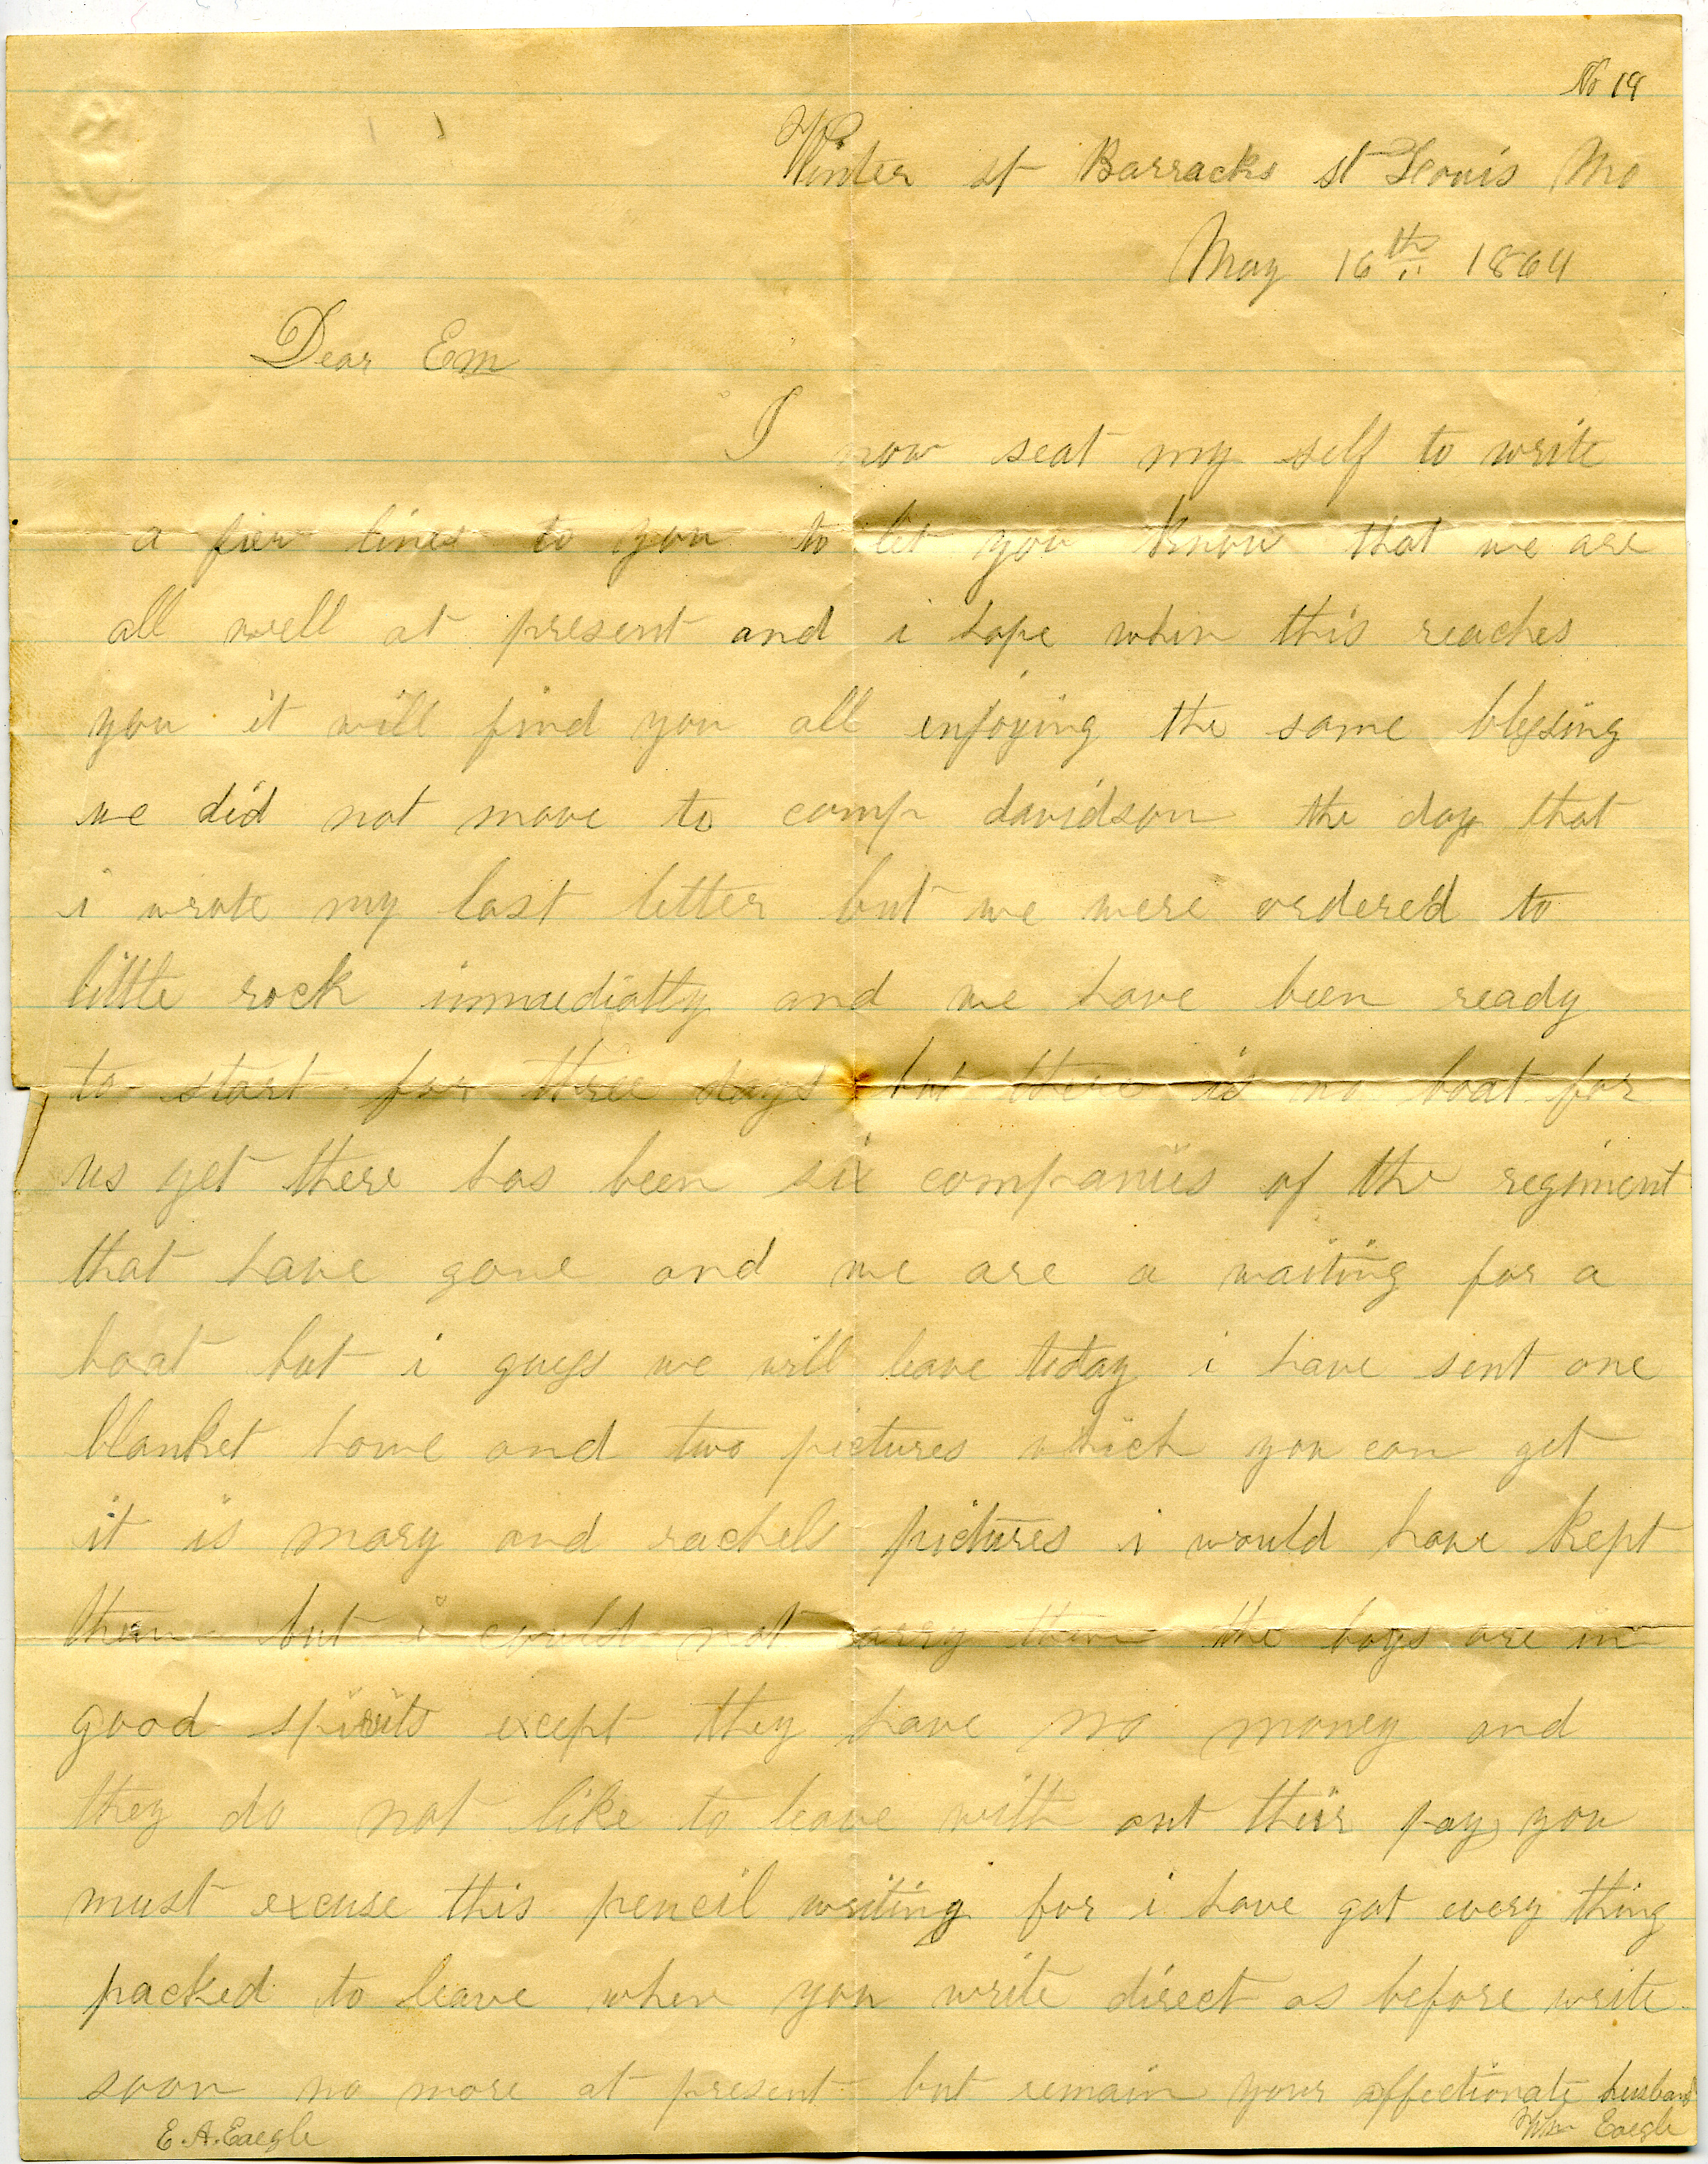 No 19
Winter st Barracks st Louis Mo
May 16th 1864
Dear Em
I now seat my self to write
a few lines to you to let you know that we are
all well at present and i hope when this reaches
you it will find you all enjoying the same blessing
we did not move to camp davidson the day that
i wrote my last letter but we were ordered to
little rock immediatly and we have been ready
to start for three days but there is no boat for
us yet there has been six companies of the regiment
that have gone and we are a waiting for a
boat but i guess we will leave today i have sent one
blanket home and two pictures which you can get
it is mary and rachels pictures i would have kept
them but i could not carry them the boys are in
good spirits except they have no money and
they do not like to leave with out their pay you
must excuse this pencil writing for i have got every thing
packed to leave when you write direct as before write
soon no more at present but remain your affectionate husband
E. A. Eaegle Wm Eaegle